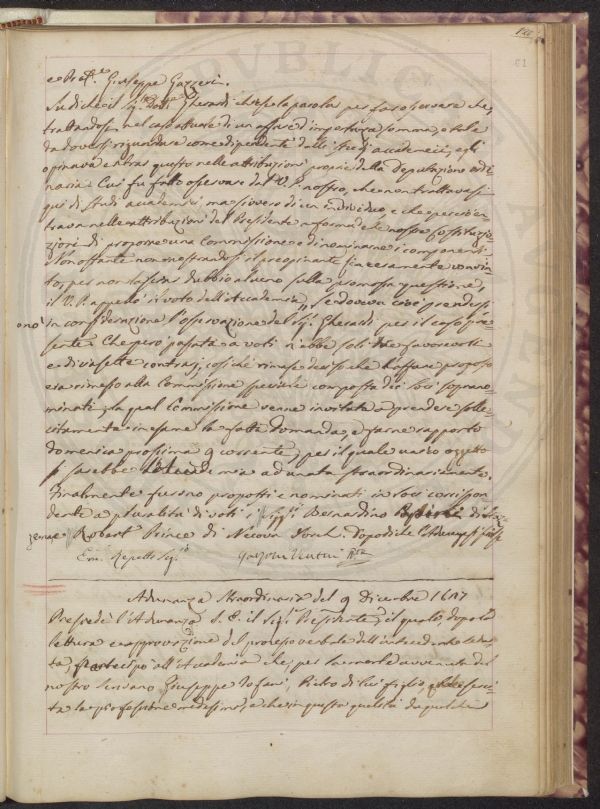 e Prof.re Giuseppe Gazzeri.
Su di che il Sig.r Dott.re Gherardi chiese la parola per far osservare che,
trattandosi nel caso attuale di un affare d'importanza somma, e tale
da doversi riguardare come dipendente dalli studj accademici, egli
opinava entrar questo nelle attribuzioni proprie della Deputazione ordi
naria. Cui fu fatto osservare dal V. P. nostro, che non trattavasi
qui di studi accademici ma sivvero di un individuo, e che perciò en
trava nelle attribuzioni del Presidente a forma delle nostre costituzio
zioni di proporre una Commissione e di nominarne i componenti.
Nonostante non mostrandosi il preopinante sinceramente convin
to, per non lasciar dubbio alcuno sulla promossa questione,
il V. P. appellò il voto dell'Accademia, se doveva cioè prendersi
in considerazione l'osservazione del Sig.r Gherardi per il caso pre
sente. Che però passata a voti n'ebbe soli tre favorevoli
e diciassette contrarj, cosichè rimase deciso che l'affare proposto
era rimesso alla Commissione speciale composta dei Soci sopranno
minati; la qual Commissione venne invitata a prendere solle
citamente in esame la fatta domanda, e farne rapporto
domenica prossima 9 corrente, per il quale unico oggetto
si sarebbe l'Accademia adunata straordinariamente.
Finalmente furono proposti e nominati in Soci corrispon
dente a pluralità di voti i Sigg.ri Bernardino di
Robert Prince di Nuova York. Dopo di che l'Adunanza si sciolse
Em. Repetti Seg.rio
Adunanza Straordinaria del 9 Dicembre
Presiede l'Adunanza S. E. il Sig.r Presidente, il quale, dopo la
lettura e approvazione del processo verbale dell'antecedente sedu
ta, partecipò all'Accademia che per la morte avvenuta del
nostro Scrivano Giuseppe Tofani, Pietro di lui figlio
ta la professione medesima, e che in questa qualità da qualche
126